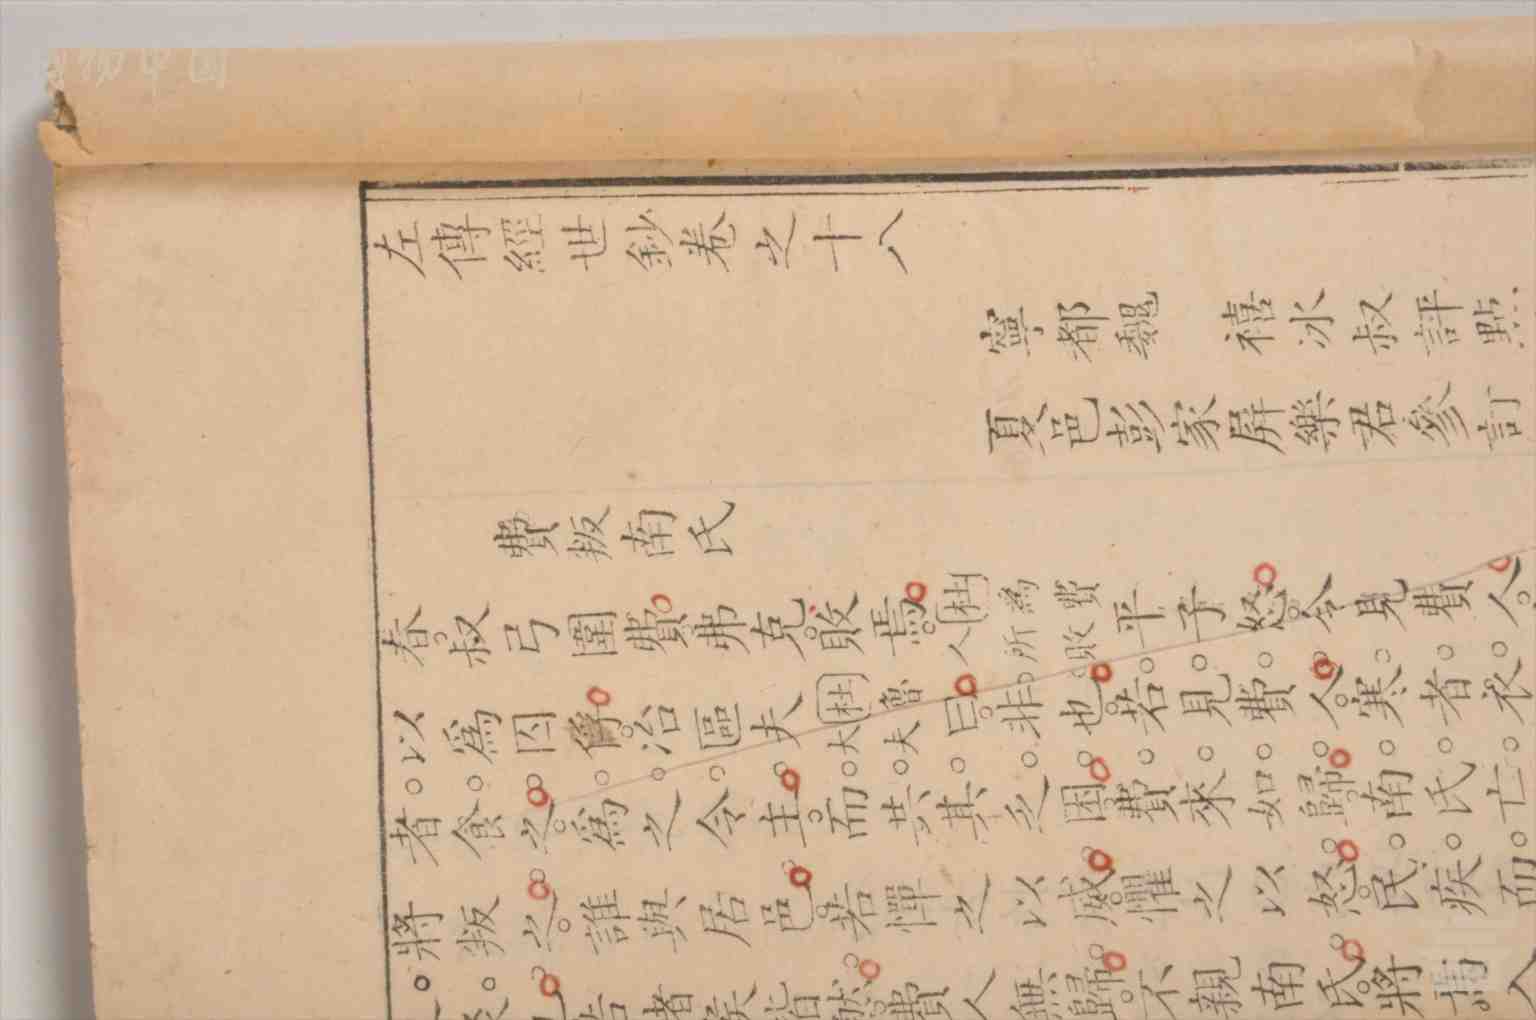 左傳經世鈔卷之十八
寧都魏　禧冰叔評點
夏邑彭家屏樂君參訂
費叛南氏
春叔弓圍費弗克敗焉杜爲費人所敗平子怒令見費人
以爲囚俘冶區夫杜魯大夫曰非也若見費人寒者衣
者食之爲之令主而共其乏困費來如歸南氏亡
將叛之誰與居邑若憚之以威懼之以怒民疾而
皆然費人無歸不親南氏將焉入